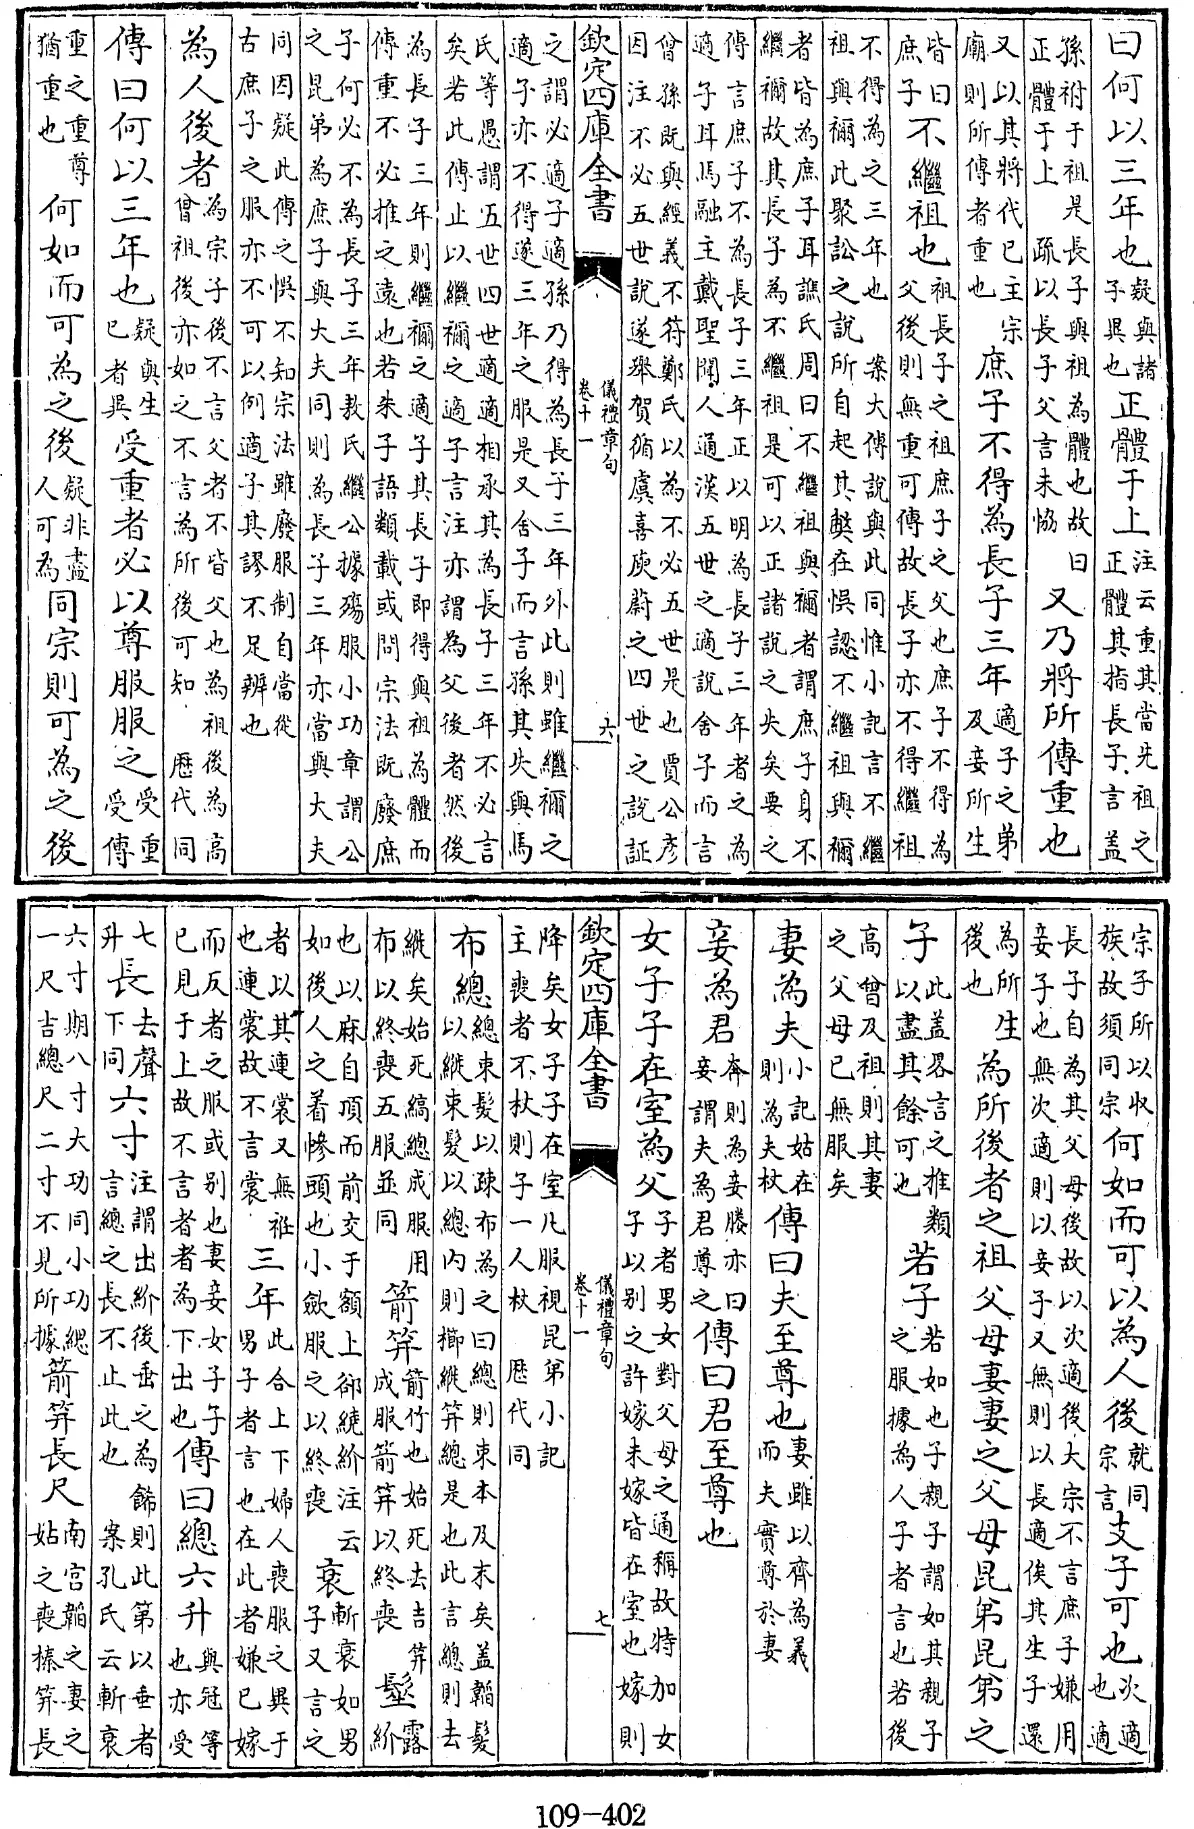 曰何以三年也疑與諸子異也正體于上注云重其當先祖之正體其指長子言蓋
孫祔于祖是長子與祖為體也故曰正體于上 疏以長子父言未協又乃將所傳重也
又以其將代已主宗廟則所傳者重也庶子不得為長子三年適子之弟及妾所生
皆曰庶子不繼祖也祖長子之祖庶子之父也庶子不得為父後則無重可傳故長子亦不得繼祖
不得為之三年也 案大傳說與此同惟小記言不繼祖與禰此聚訟之說所自起其弊在悞認不繼祖與禰
者皆為庶子耳譙氏周曰不繼祖與禰者謂庶子身不繼禰故其長子為不繼祖是可以正諸說之失矣要之
傳言庶子不為長子三年正以明為長子三年者之為適子耳馬融主戴聖聞人通漢五世之適說舍子而言
曾孫既與經義不符鄭氏以為不必五世是也賈公彥因注不必五世說遂舉賀循虞喜庾蔚之四世之說証
欽定四庫全書 儀禮章句 卷十一 六
之謂必適子適孫乃得為長子三年外此則雖繼禰之適子亦不得遂三年之服是又舍子而言孫其失與馬
氏等愚謂五世四世適適相承其為長子三年不必言矣若此傳止以繼禰之適子言注亦謂為父後者然後
為長子三年則繼禰之適子其長子即得與祖為體而傳重不必推之遠也若朱子語類載或問宗法既廢庶
子何必不為長子三年敖氏繼公據殤服小功章謂公之昆弟為庶子與大夫同則為長子三年亦當與大夫
同因疑此傳之悞不知宗法雖廢服制自當從古庶子之服亦不可以例適子其謬不足辨也
為人後者為宗子後不言父者不皆父也為祖後為高曾祖後亦如之不言為所後可知 歴代同
傳曰何以三年也疑與生已者異受重者必以尊服服之受重受傳
重之重尊猶重也何如而可為之後疑非盡人可為同宗則可為之後
宗子所以收族故須同宗何如而可以為人後就同宗言支子可也次適也適
長子自為其父母後故以次適後大宗不言庶子嫌用妾子也無次適則以妾子又無則以長適俟其生子還
為所生後也為所後者之祖父母妻妻之父母昆弟昆弟之
子此蓋畧言之推類以盡其餘可也若子若如也子親子謂如其親子之服據為人子者言也若後
高曾及祖則其妻之父母已無服矣
妻為夫小記姑在則為夫杖傳曰夫至尊也妻雖以齊為義而夫實尊於妻
妾為君奔則為妾媵亦曰妾謂夫為君尊之傳曰君至尊也
女子子在室為父子者男女對父母之通稱故特加女子以别之許嫁未嫁皆在室也嫁則
欽定四庫全書 儀禮章句 卷十一 七
降矣女子子在室凡服視昆弟小記主喪者不杖則子一人杖 歴代同
布總總束髮以疎布為之曰總則束本及末矣蓋韜髮以縰束髮以總内則櫛縰笄總是也此言總則去
縰矣始死縞總成服用布以終喪五服並同箭笄箭竹也始死去吉笄成服箭笄以終喪髽露紒
也以麻自項而前交于額上郤繞紒注云如後人之着幓頭也小歛服之以終喪衰斬衰如男子又言之
者以其連裳又無袵也連裳故不言裳三年此合上下婦人喪服之異于男子者言也在此者嫌已嫁
而反者之服或别也妻妾女子子已見于上故不言者者為下出也傳曰總六升與冠等也亦受
七升長去聲下同六寸注謂出紒後垂之為飾則此第以垂者言總之長不止此也 案孔氏云斬衰
六寸期八寸大功同小功緦一尺吉總尺二寸不見所據箭笄長尺南宫韜之妻之姑之喪榛笄長
109-402